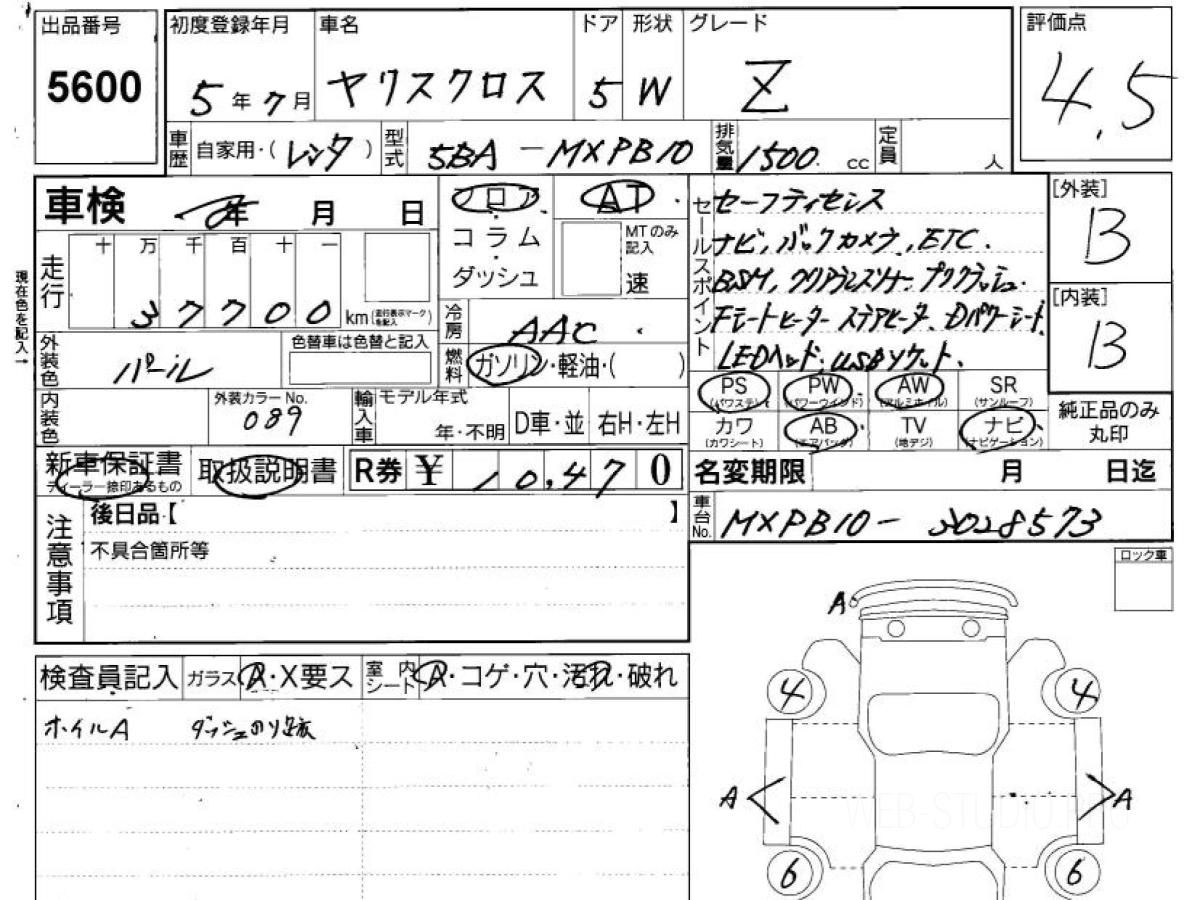 出品番号 初度登録年月 車名 ドア 形状 グレード 評価点
5600 5年7月 ヤリスクロス 5 W Z 4.5
車歴 自家用・(レンタ) 型式 5BA-MXPB10 排気量 1500 cc 定員 人
車検 年 月 日 フロア AT セールスポイント セーフティセンス [外装]
十 万 千 百 十 一 コラム MTのみ記入 ナビ、バックカメラ、ETC. B
走行 ダッシュ 速 BSM、クリアランスソナー
37700 km(走行表示マークを記入) 冷房 AAC シートヒーター ステアヒータ、Dパワーシート [内装]
現在色を記入→
外装色 パール 色替車は色替と記入 燃料 ガソリン・軽油・( ) LEDヘッド、USBソケット、 B
PS(パワステ) PW(パワーウインド) AW(アルミホイル) SR(サンルーフ)
内装色 外装カラーNo. 089 輸入車 モデル年式 年・不明 D車・並 右H・左H カワ(カワシート) AB(エアバッグ) TV(地デジ) ナビ(ナビゲーション) 純正品のみ丸印
新車保証書 ディーラー捺印あるもの 取扱説明書 R券 ¥ 10,470 名変期限 月 日迄
注意事項 後日品【 】 車台No. MXPB10-3028573
不具合箇所等
ロック車
A
検査員記入 ガラス A・X要ス 室内シート A・コゲ・穴・汚れ・破れ
ホイルA ダッシュのリ跡
4 4
A A
WEB-STUDIO.PRO
6 6